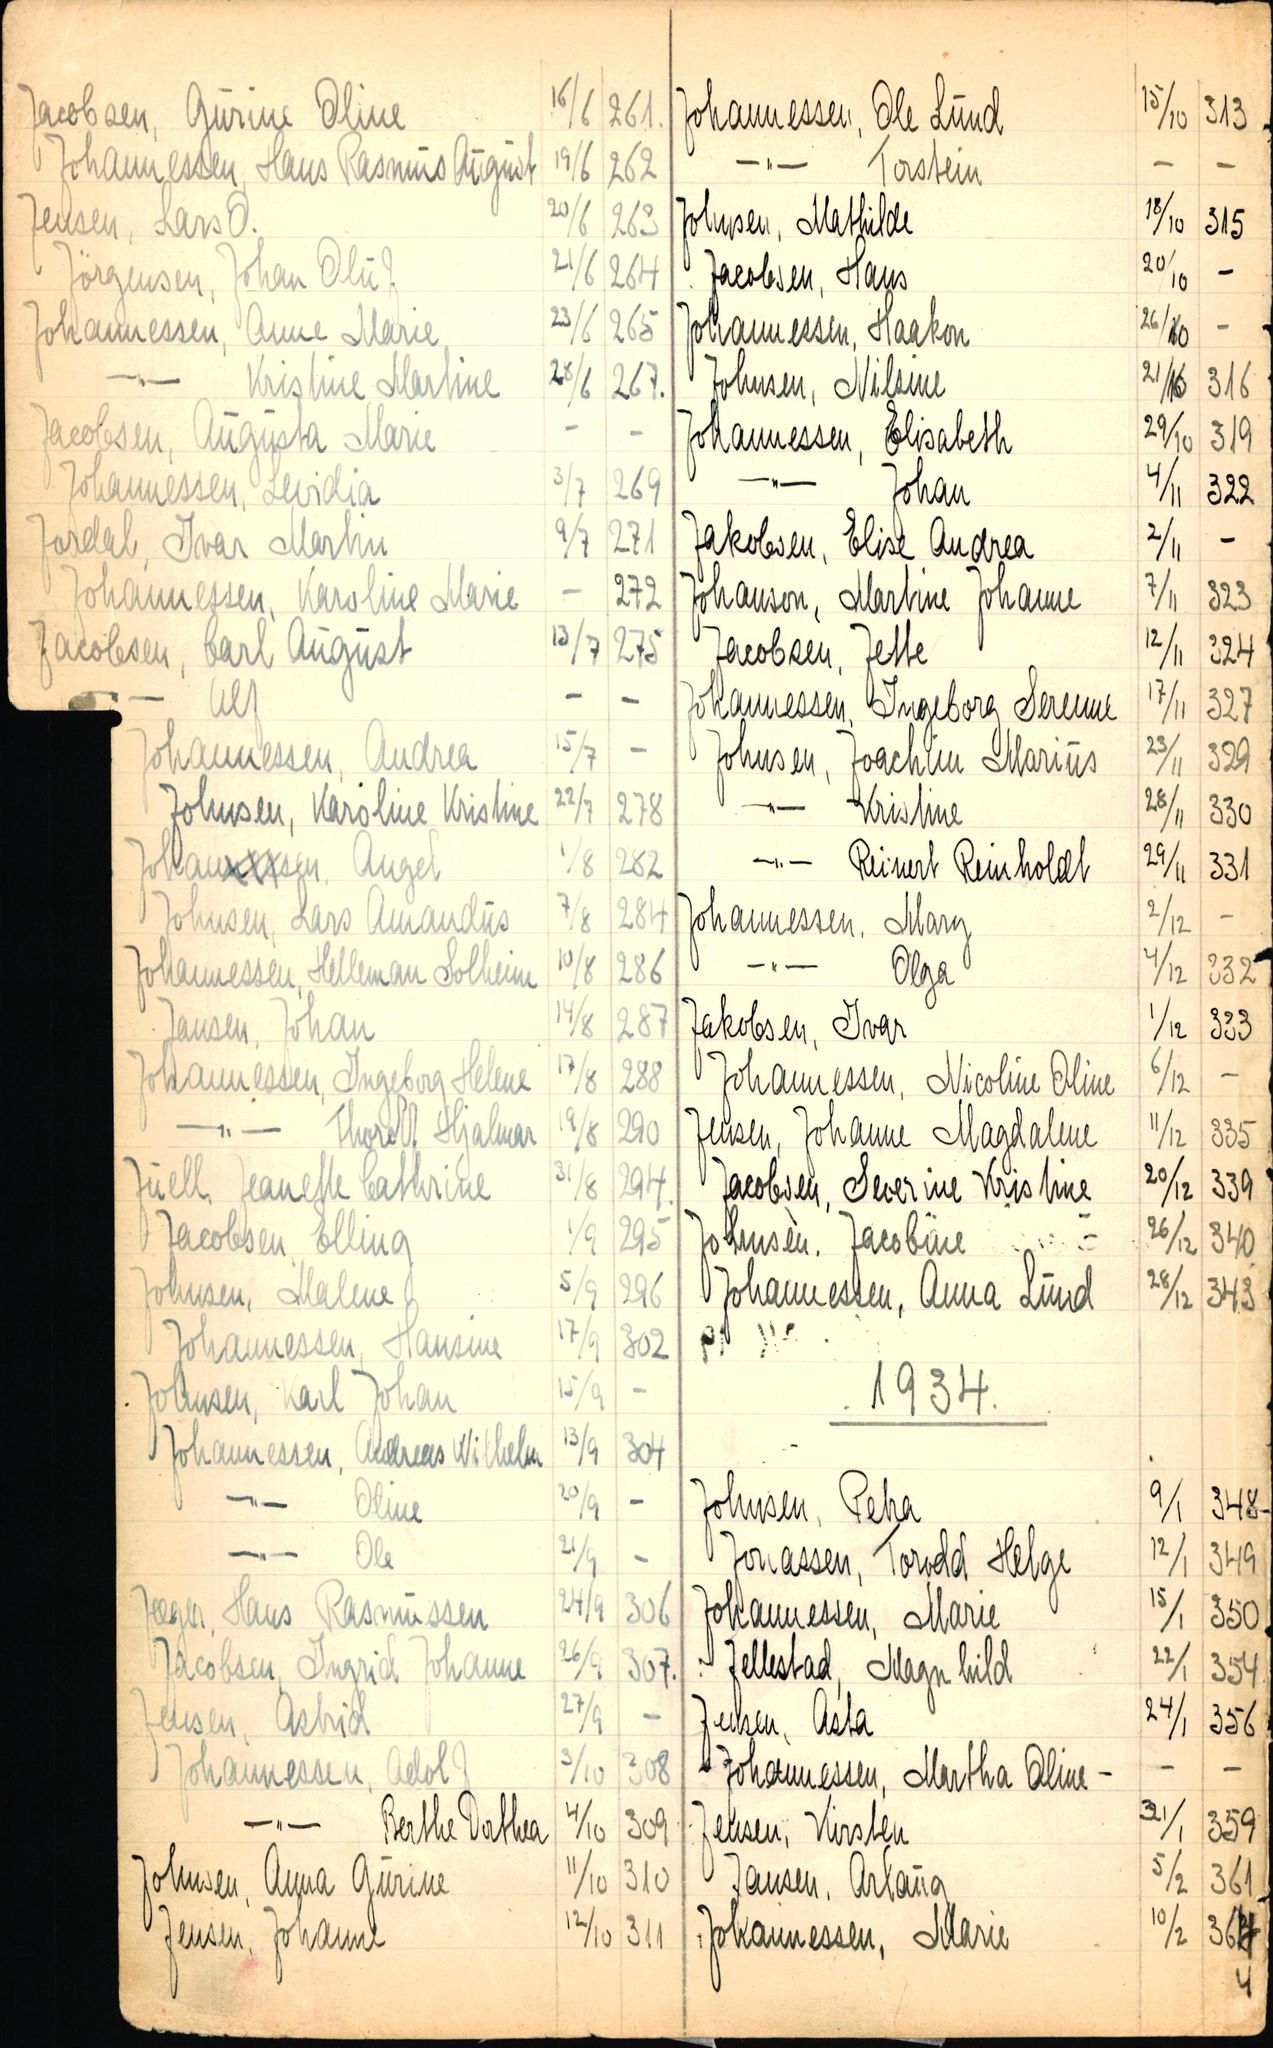 Jacobsen, Gurine Oline 16/6 261.
Johannessen, Hans Rasmus August 19/6 262
Jensen, Lars O. 20/6 263
Jörgensen, Johan Oluf 21/6 264
Johannessen, Anne Marie 23/6 265
—"— Kristine Martine 28/6 267.
Jacobsen, Augusta Marie - -
Johannessen, Levidia 3/7 269
Jordal, Ivar Martin 9/7 271
Johannessen, Karoline Marie - 272
Jacobsen, Carl August 13/7 275
—"— Ulf - -
Johannessen, Andrea 15/7 -
Johnsen, Karoline Kristine 22/7 278
Johansen, Angel 1/8 282
Johnsen, Lars Amandus 7/8 284
Johannessen, Helleman Solheim 10/8 286
Jansen, Johan 14/8 287
Johannessen, Ingeborg Helene 17/8 288
—"— Hjalmar 19/8 290
Juell, Jeanette Cathrine 31/8 294.
Jacobsen, Elling 1/9 295
Johnsen, Malene 5/9 296
Johannessen, Hansine 17/9 302
Johnsen, Karl Johan 15/9 -
Johannessen, Andreas Wilhelm 13/9 304
—"— Oline 20/9 -
—"— Ole 21/9 -
Jæger, Hans Rasmussen 24/9 306
Jacobsen, Ingrid Johanne 26/9 307.
Jensen, Astrid 27/9 -
Johannessen, Adolf 3/10 308
—"— Berthe Dorthea 4/10 309
Johnsen, Anna Gurine 11/10 310
Jensen, Johanne 12/10 311
Johannessen, Ole Lund 15/10 313
—"— Torstein - -
Johnsen, Mathilde 18/10 315
Jacobsen, Hans 20/10 -
Johannessen, Haakon 26/10 -
Johnsen, Nilsine 21/10 316
Johannessen, Elisabeth 29/10 319
—"— Johan 4/11 322
Jakobsen, Elise Andrea 2/11 -
Johanson, Martine Johanne 7/11 323
Jacobsen, Jette 12/11 324
Johannessen, Ingeborg Serenne 17/11 327
Johnsen, Joachim Marius 23/11 329
—"— Kristine 28/11 330
—"— Reinert Reinholdt 29/11 331
Johannessen, Mary 2/12 -
—"— Olga 4/12 332
Jakobsen, Ivar 1/12 333
Johannessen, Nicoline Oline 6/12 -
Jensen, Johanne Magdalene 11/12 335
Jacobsen, Severine Kristine 20/12 339
Johnsen, Jacobine 26/12 340
Johannessen, Anna Lund 28/12 343
1934.
Johnsen, Petra 9/1 348
Jonassen, Torodd Helge 12/1 349
Johannessen, Marie 15/1 350
Jellestad, Magnhild 22/1 354
Jensen, Asta 24/1 356
Johannessen, Martha Oline - - -
Jensen, Kirsten 31/1 359
Jansen, Arlaug 5/2 361
Johannessen, Marie 10/2 364
4